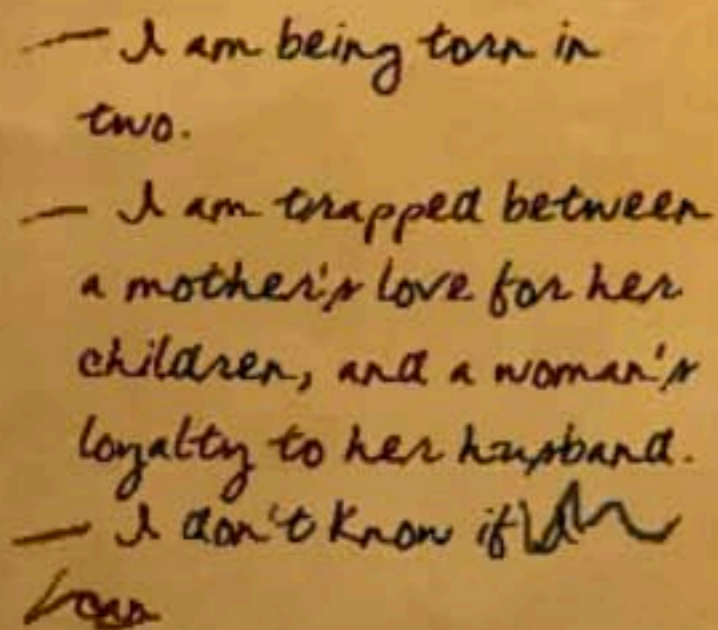 — I am being torn in
two.
— I am trapped between
a mother's love for her
children, and a woman's
loyalty to her husband.
— I don't know if